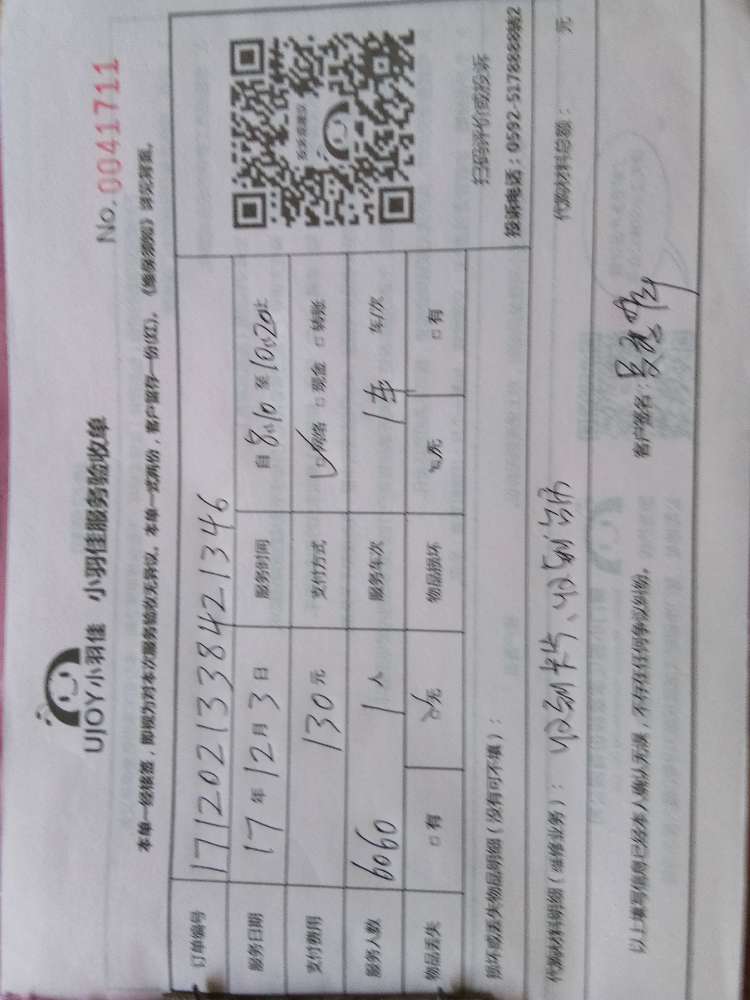 UJOY小羽佳 小羽佳服务验收单
No. 0041711
本单一经核签，即视为对本次服务验收无异议。本单一式两份，客户留存一份(红)。《维保须知》详见背面。
订单编号 1712021338421346
服务日期 17年12月3日 服务时间 自8:10至10:20止
支付费用 130元 支付方式 □网络 □现金 □转账
服务人数 6060 1人 服务车次 1车 车/次
物品丢失 □有 □无 物品损坏 □无 □有
扫码评价或投诉
投诉电话：0592-5178888转2
损坏或丢失物品明细（没有可不填）：
代购材料明细（维修业务）：收到卡片、收到 代购材料总额： 元
以上填写信息已经本人确认无误，不存在任何争议纠纷。 客户签名：